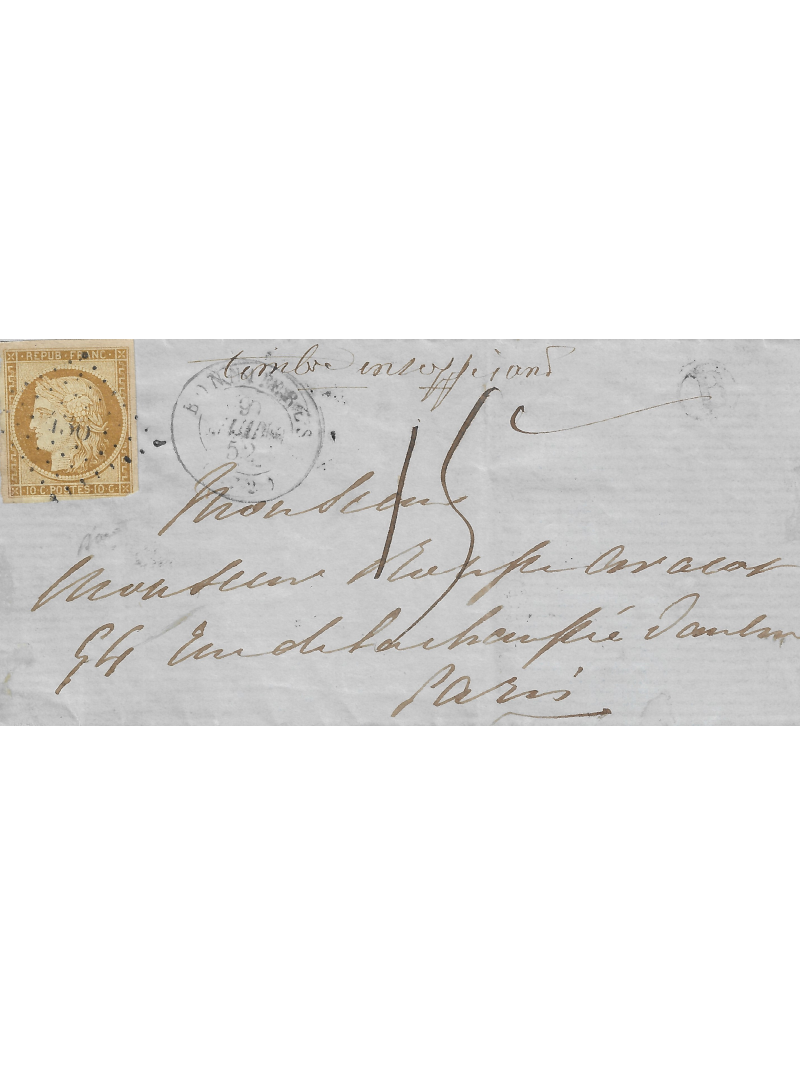 REPUB. FRANC.
10 C. POSTES 10 C.
timbre insuffisant
BONNIERES
52
15 c
Monsieur
Monsieur
54 Rue de la chaussée d'antin
Paris